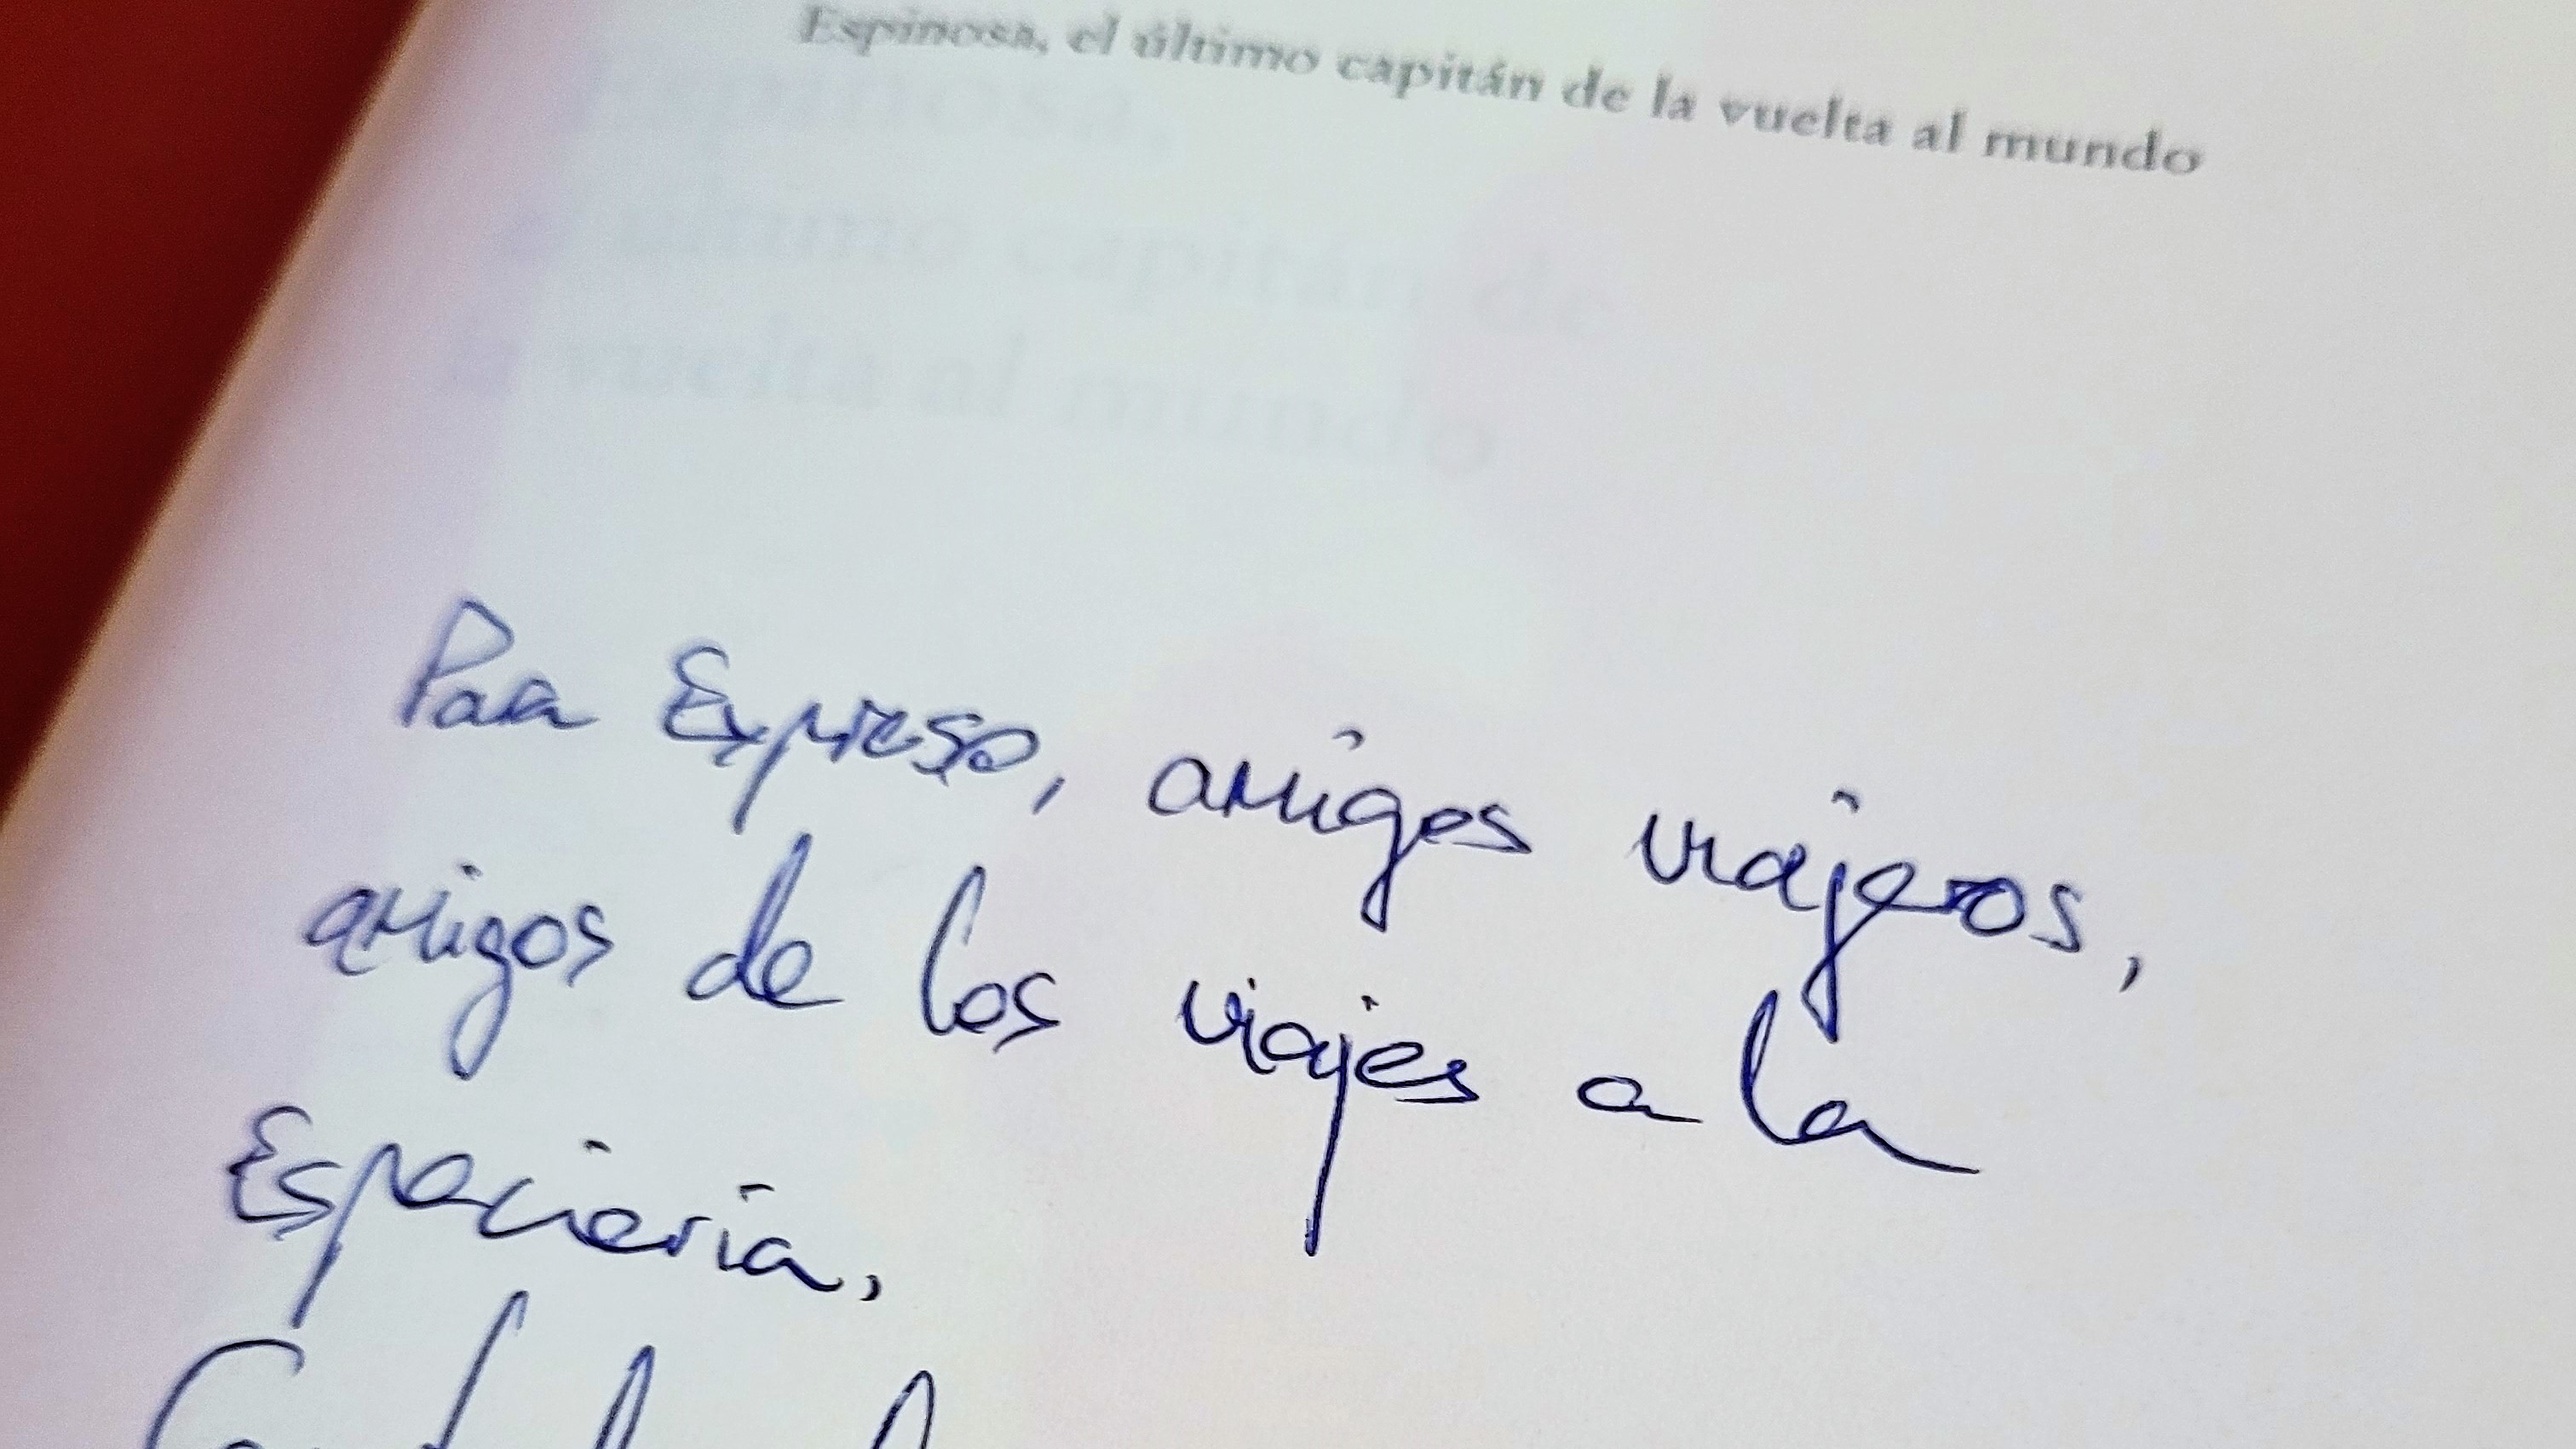 Espinosa, el último capitán de la vuelta al mundo
último capitán de
la vuelta al mundo
Para Expreso, amigos viajeros,
amigos de los viajes a la
Especiería,